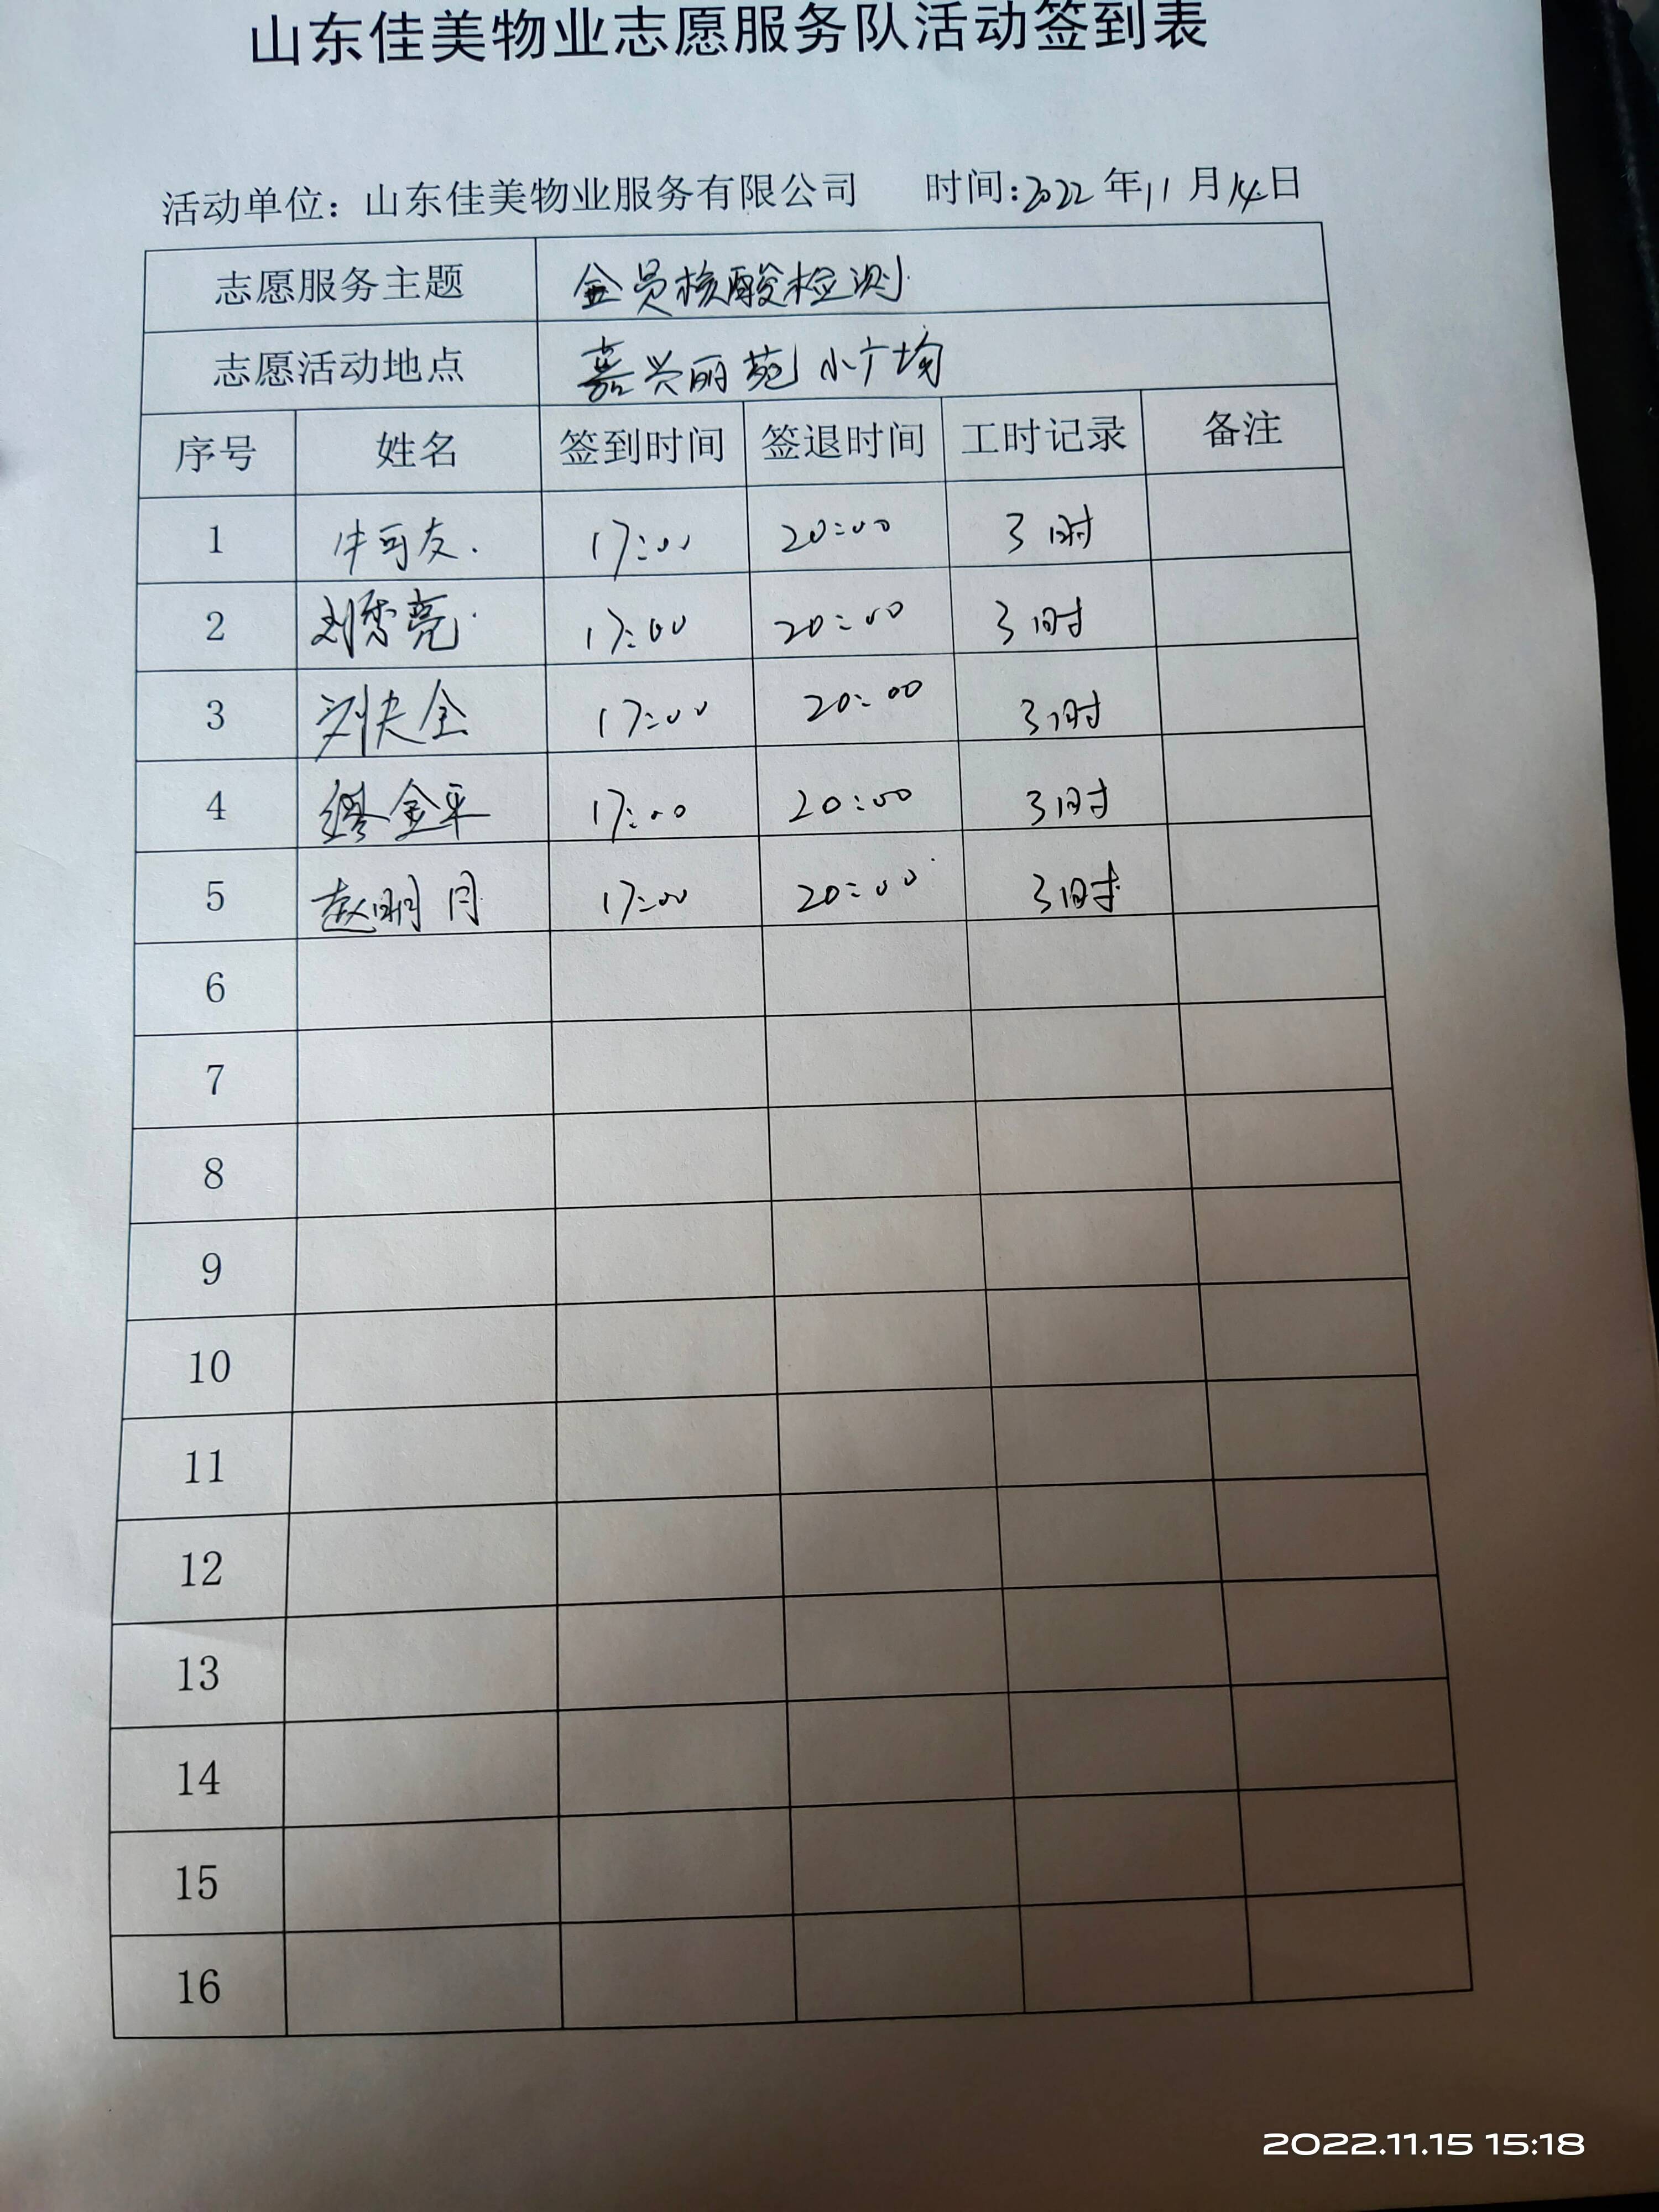 山东佳美物业志愿服务队活动签到表
活动单位：山东佳美物业服务有限公司 时间:2022年11月14日
志愿服务主题 全员核酸检测
志愿活动地点 嘉兴丽苑小广场
序号 姓名 签到时间 签退时间 工时记录 备注
1 牛可友. 17:00 20:00 3时
2 刘秀亮. 17:00 20:00 3时
3 刘夫全 17:00 20:00 3时
4 缪金平 17:00 20:00 3时
5 赵明月 17:00 20:00 3时
6
7
8
9
10
11
12
13
14
15
16
2022.11.15 15:18